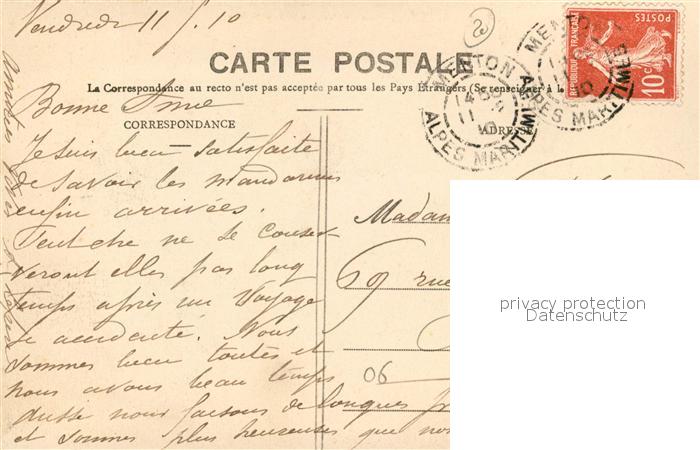 Vendredi 11/. 10
CARTE POSTALE
La Correspondance au recto n'est pas acceptée par tous les Pays Etrangers (Se renseigner à la
CORRESPONDANCE
ADRESSE
MENTON
ALPES MARITIMES
MENTON
ALPES MARITIMES
REPUBLIQUE FRANÇAISE
POSTES
10c
Bonne
Je suis bien satisfaite
de savoir les mandarines
enfin arrivées.
Peut être ne se conser-
veront elles pas long
temps après un voyage
si accidenté. Nous
sommes bien toutes et
nous avons beau temps
aussi nous faisons de longues
et sommes plus heureuses que nos
Madam
69 rue
06
privacy protection
Datenschutz